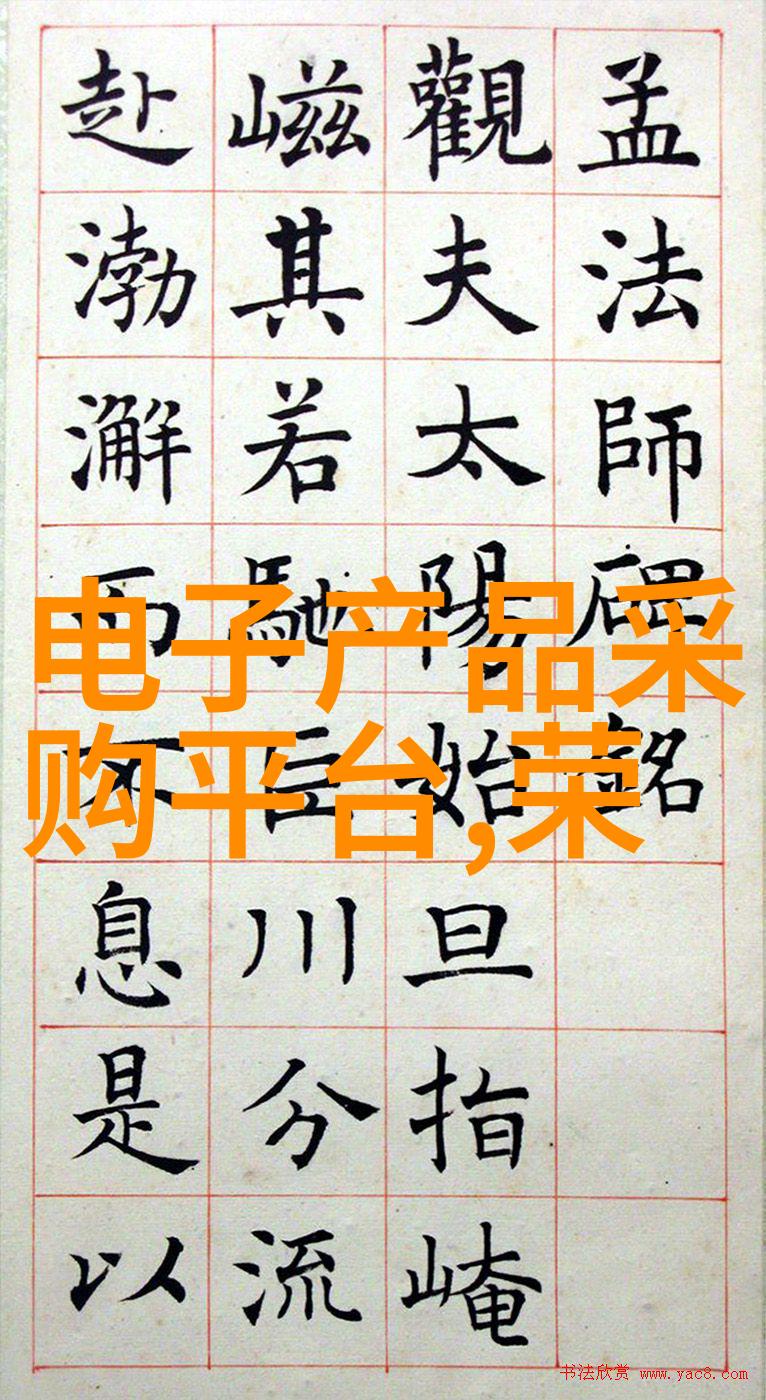 孟法師碑銘
觀夫太陽始旦指崦
嵫其若馳巨川分流
赴渤澥而不息是以
电子产品采
购平台,荣
书法欣赏 www.yac8.com